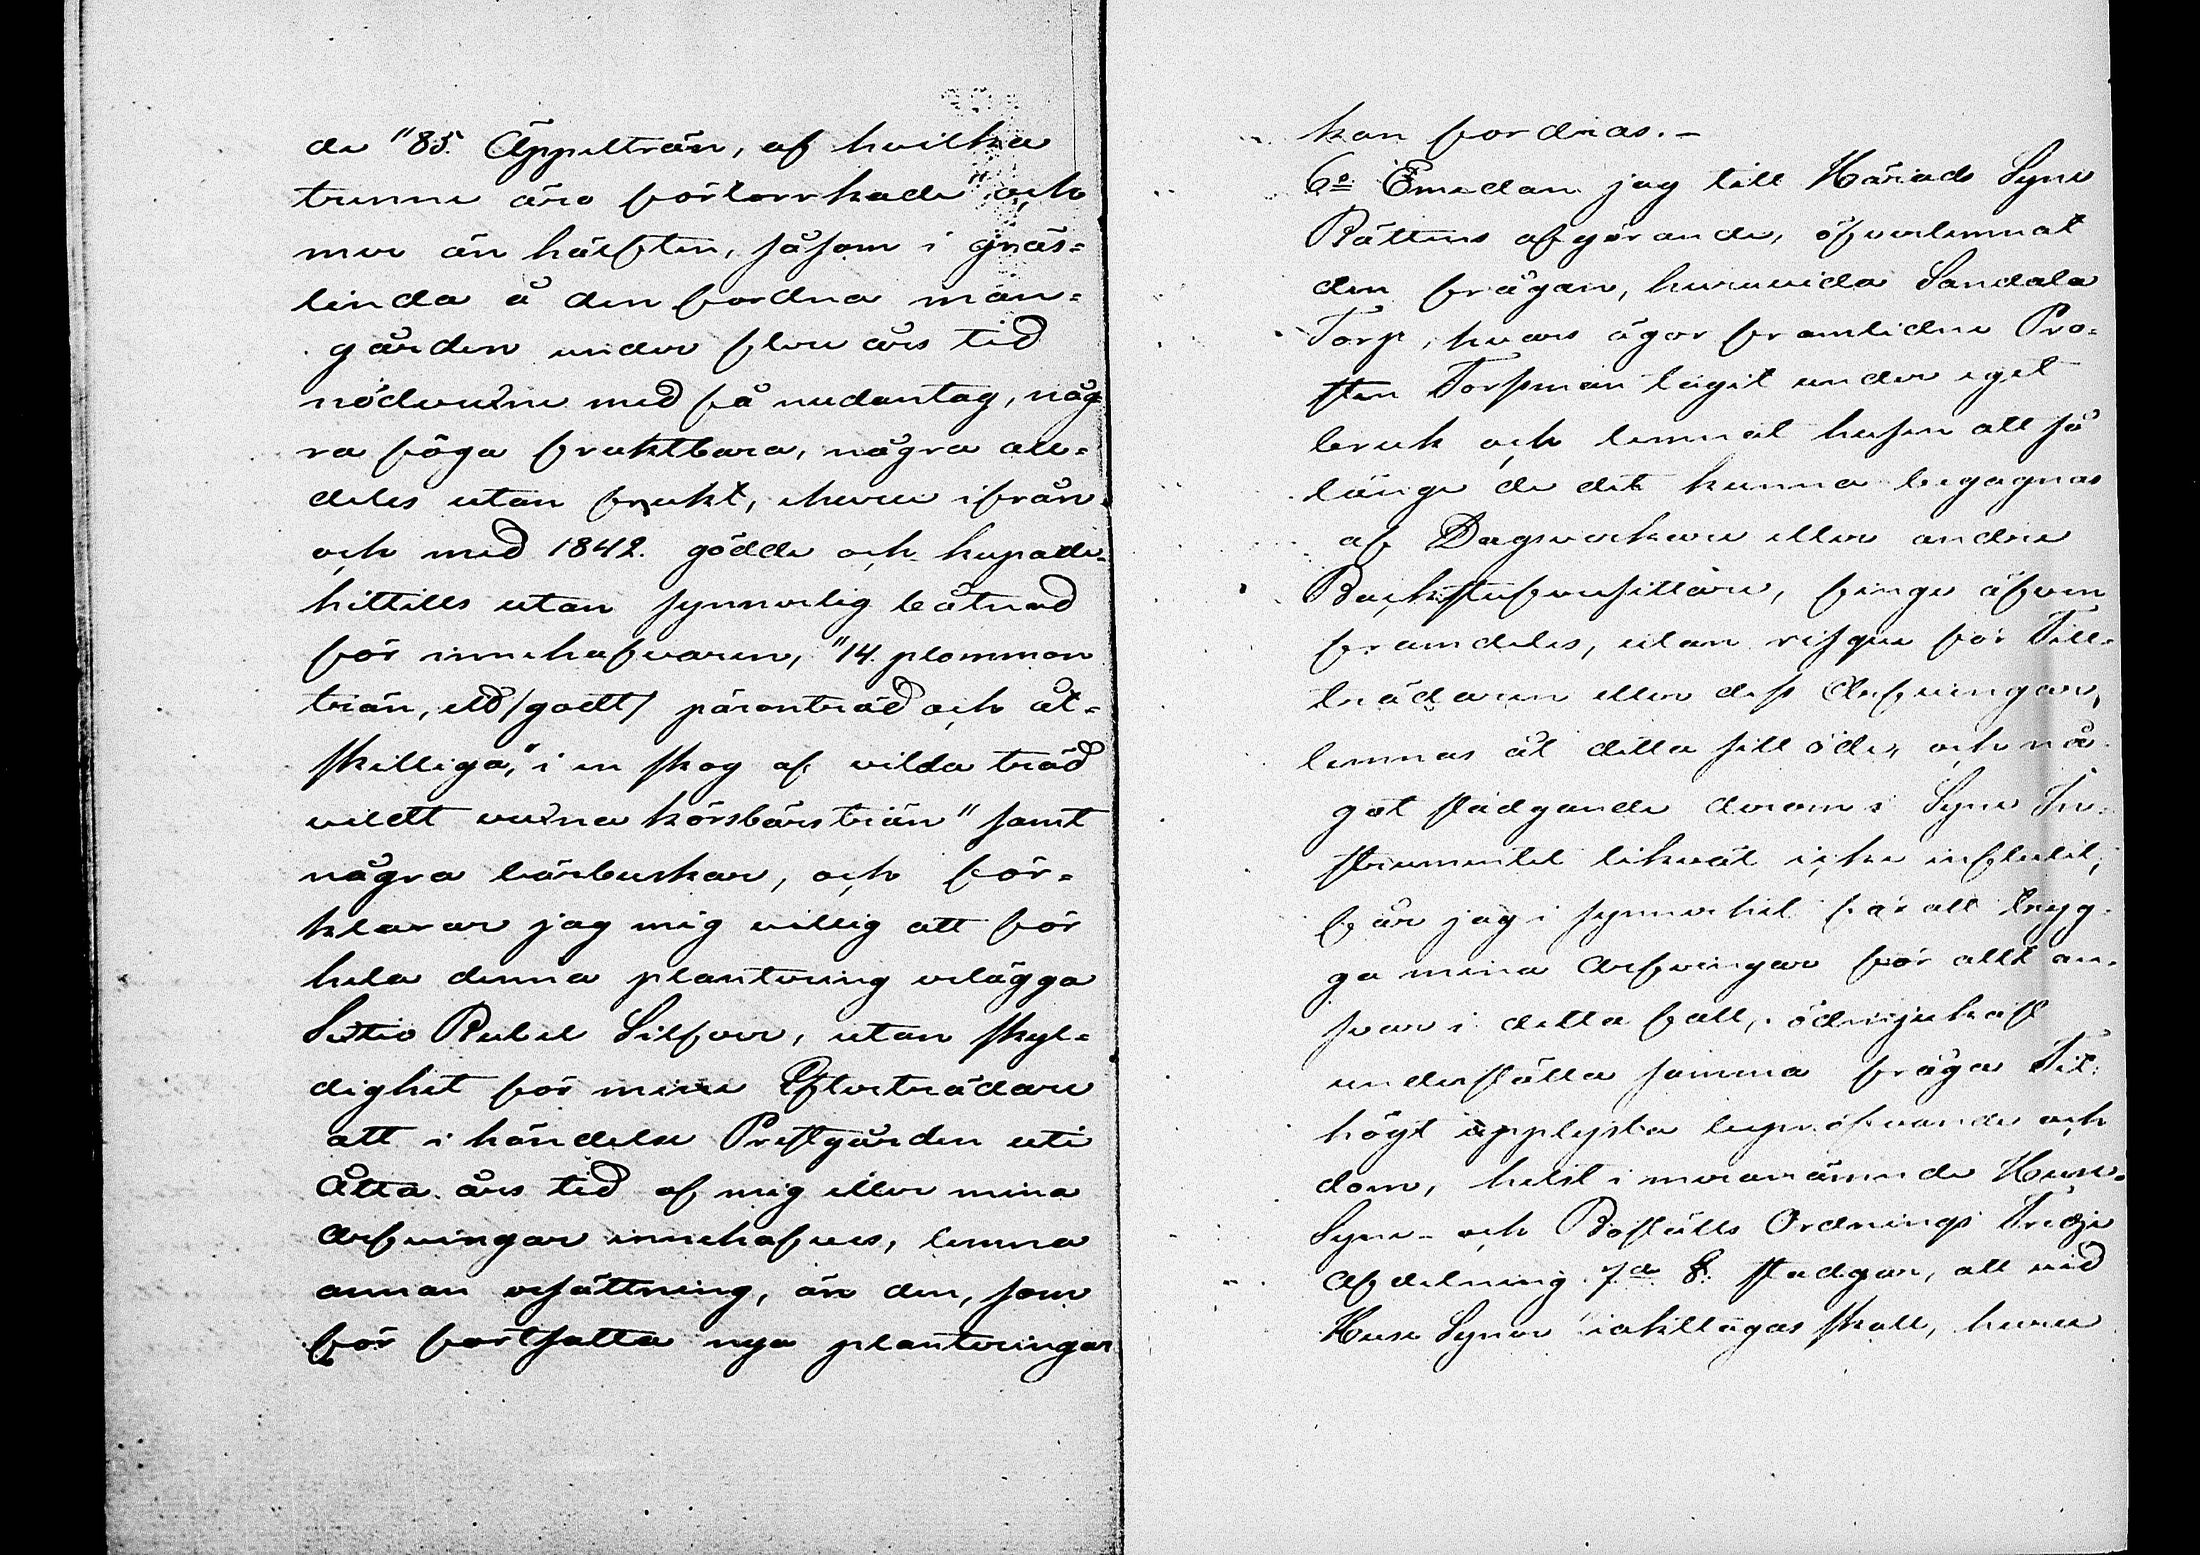 de "85. Äppelträn, af hvilka
trenne äro förtorrkade" och
mer än hälften, såsom i gräs-
linda å den fordna man-
gården under flere års tid
nödvuxne med få undantag, någ-
ra föga fruktbara, några all-
deles utan frukt, ehuru ifrån
och med 1842. gödde och kupade
hittills utan synnerlig båtnad
för innehafvaren, "14. plommon
trän, ett /godt/ päronträd och åt-
skilliga," i en skog af vilda träd
vildt vuxna körsbärsträn" samt
några bärbuskar, och för-
klarar jag mig villig att för
hela denna plantering erlägga
Sextio Rubel Silfver, utan skyl-
dighet för mine Efterträdare
att i händelse Prestgården uti
Åtta års tid af mig eller mina
Arfvingar innehafves, lemna
annan ersättning, än den, som
för fortsatta nya planteringar
kan fordras.-
6o Emedan jag till Härads Syne
Rättens afgörande, öfverlemnat
den frågan, huruvida Sandala
Torp, hvars ägor framlidne Pro-
sten Forsman tagit under eget
bruk och lemnat husen att så
länge de det kunna begagnas
af Dagsverkare eller andre
Backstufvusittare, finge äfven
framdeles, utan risque för Till-
trädaren eller dess Arfvingar,
lemnas åt detta sitt öde, och nå-
got stadgande derom i Syne In-
strumentet likväl icke influtit,
får jag i synnerhet för att trygg-
ga mina Arfvingar för allt an-
svar i detta fall, ödmjukast
underställa samma fråga Till
högt upplysta bepröfvande och
dom, helst i meranämnde Huse-
Syne- och Boställs Ordnings Tredje
Afdelning 7de §. stadgar, att vid
Huse Syner iakttagas skall, huru